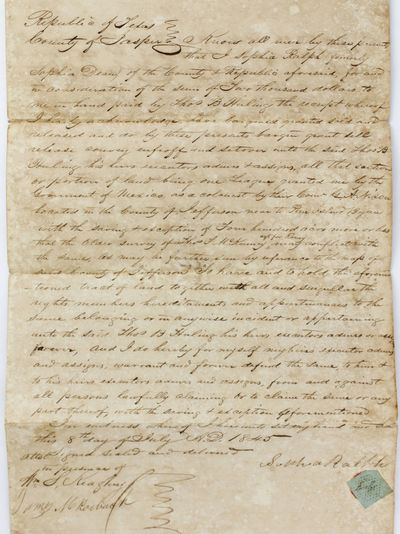 Republic of Texas
County of Jasper Know all men by these presents
that I Sophia Ralph formerly
Sophia Dean of the County & Republic aforesaid, for and
in consideration of the sum of Two thousand dollars to
me in hand paid by Thos B Huling the receipt whereof
I hereby acknowledge have bargained granted sold and
released and do by these presents bargain grant sell
release convey enfeoff and unto the said Thos B
Huling his heirs executors admrs & assigns, all that section
or portion of land being one League granted me by the
Government of Mexico as a colonist by their Com
located in the County of Jefferson near to Bayou
with the saving & exception of Four hundred acrs more or less
that the survey of may conflict with
the same, as may be further seen by referance to the maps of
said County of Jefferson To have and to hold the aforemen
-tioned tract of land together with all and singular the
rights members hereditaments and appurtenances to the
same belonging or in anywise incident or appertaining
unto the said Thos B Huling his heirs executors admrs or
forever, And I do hereby for myself my heirs executors admrs
and assigns, warrant and forever defend the same to him &
to his heirs executors admrs and assigns, from and against
all persons lawfully claiming or to claim the same or any
part thereof, with the saving & exception aforementioned
In witness whereof I hereunto set my hand
this 8th day of July A.D 1845
attest signed sealed and delivered
in presence of
Sophia Ralph
Wm